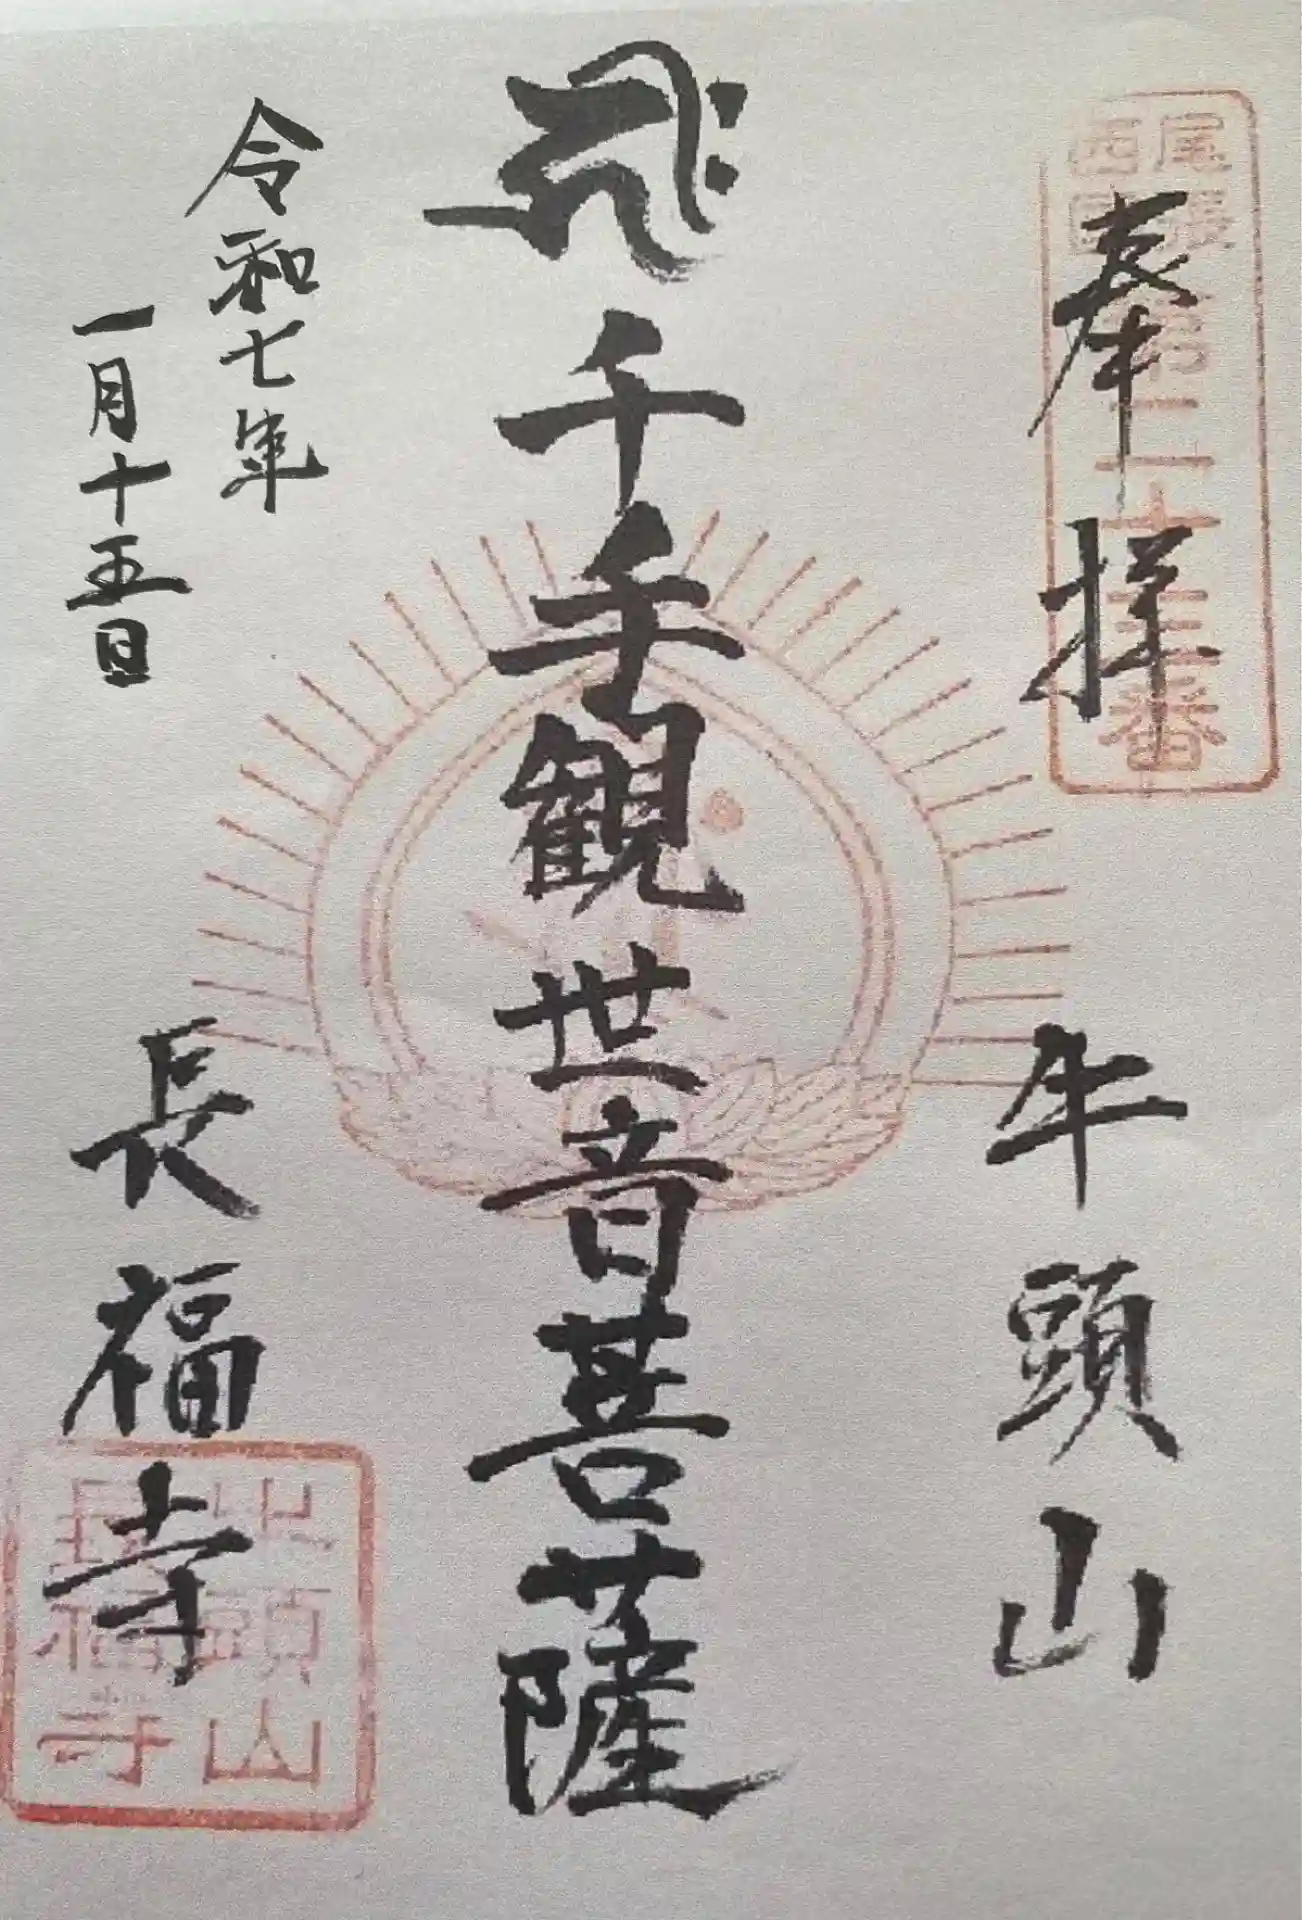 尾張
西国
第二十三番
奉拝
牛頭山
千手観世音菩薩
令和七年
一月十五日
長福寺
牛頭山
長福寺